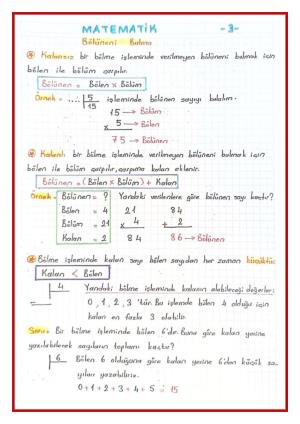 MATEMATİK -3-
Bölüneni Bulma
Kalansız bir bölme işleminde verilmeyen bölüneni bulmak için
bölen ile bölüm çarpılır.
Bölünen = Bölen x Bölüm
Örnek = ... : | 5 işleminde bölünen sayıyı bulalım.
15
15 → Bölüm
x 5 → Bölen
75 → Bölünen
Kalanlı bir bölme işleminde verilmeyen bölüneni bulmak için
bölen ile bölüm çarpılır, çarpıma kalan eklenir.
Bölünen = (Bölen x Bölüm) + Kalan
Örnek = Bölünen = ? Yandaki verilenlere göre bölünen sayı kaçtır?
Bölen = 4 21 84
Bölüm = 21 x 4 + 2
Kalan = 2 84 86 → Bölünen
Bölme işleminde kalan sayı bölen sayıdan her zaman küçüktür.
Kalan < Bölen
4 Yandaki bölme işleminde kalanın alabileceği değerler:
0, 1, 2, 3 'tür. Bu işlemde bölen 4 olduğu için
kalan en fazla 3 olabilir.
Soru: Bir bölme işleminde bölen 6'dır. Buna göre kalan yerine
yazılabilecek sayıların toplamı kaçtır?
6 Bölen 6 olduğuna göre kalan yerine 6'dan küçük sa-
yıları yazabiliriz.
0+1+2+3+4+5 = 15